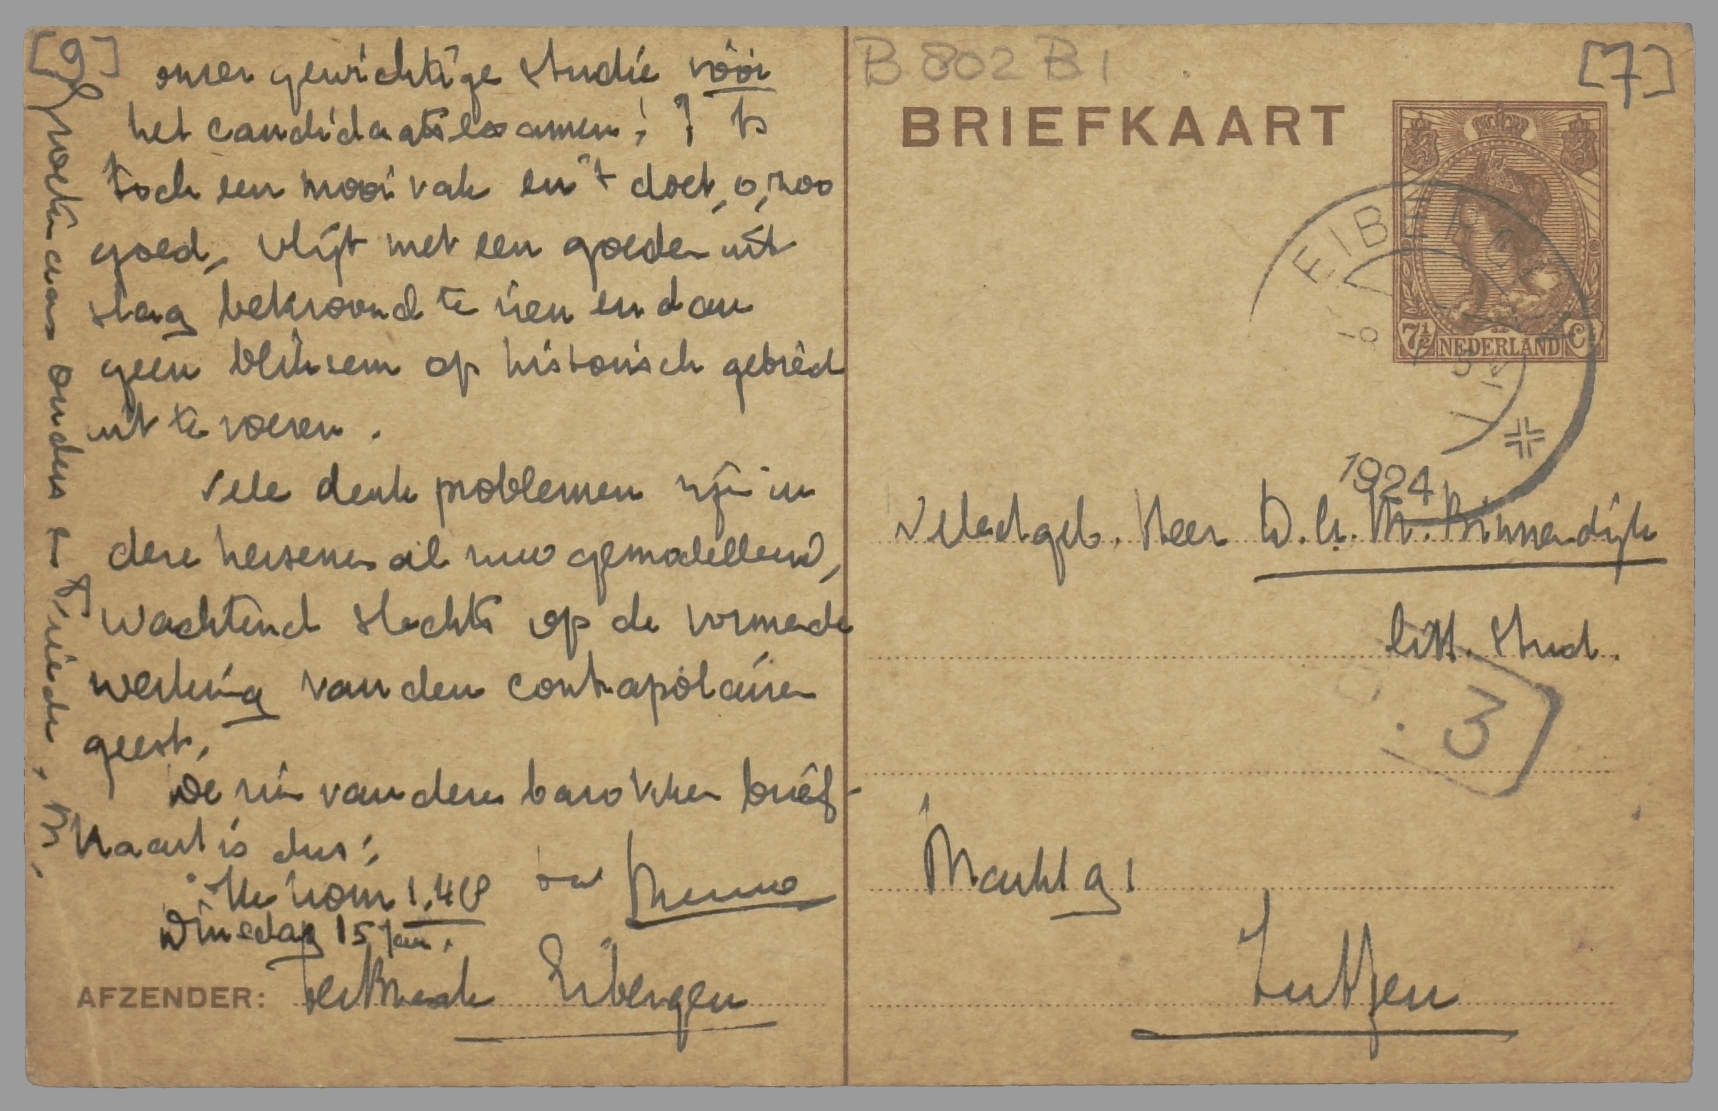 [9]
onzer gewichtige studie vóór
het candidaatsexamen! 't Is
toch een mooi vak en 't doet, o, zoo
goed, vlijt met een goeden uit
slag bekroond te zien en dan
geen bliksem op historisch gebied
uit te voeren.
Vele denk problemen zijn in
deze hersenen al nuw gemodelleerd,
wachtend slechts op de vormende
werking van den contrapolairen
geest.
De zin van deze barokken brief-
kaart is dus:
Ik kom 1.48
Dinsdag 15 Jan.
Menno
Groeten aan ouders en vrienden, M.
AFZENDER: ter Braak Eibergen
B 802 B 1
[7]
BRIEFKAART
7½ Ct
NEDERLAND
EIBERGEN
1924
WelEdgeb. Heer D.A.M. Binnendijk
litt. stud.
3
Markt g 1
Zutfen